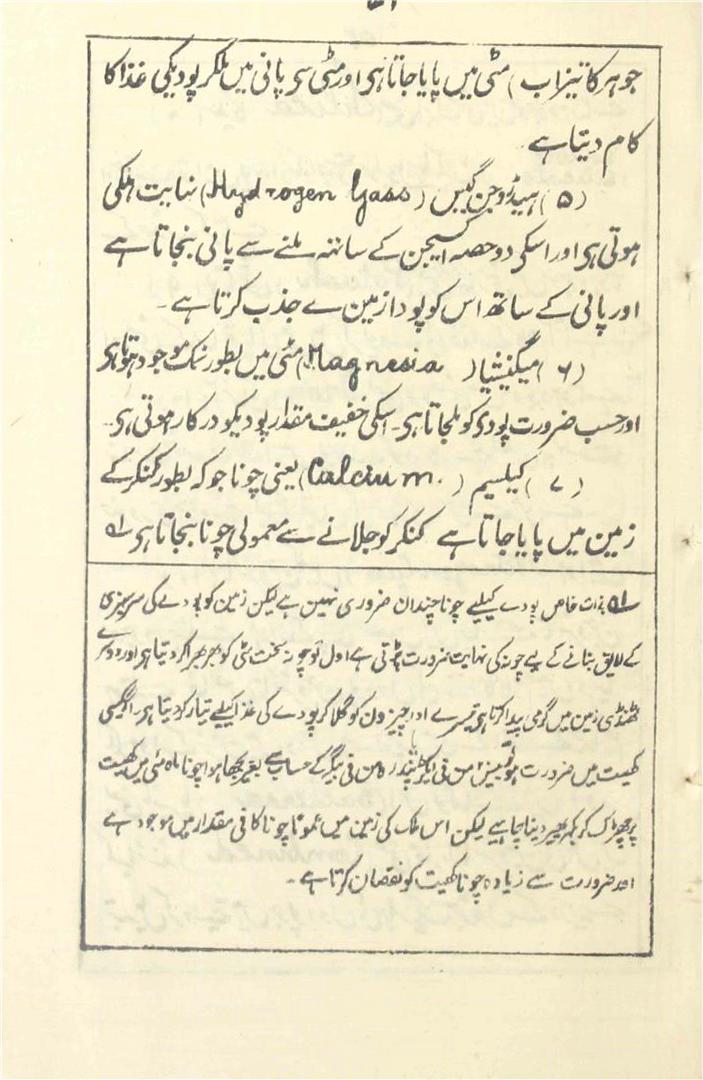 جوہر کا تیزاب) مٹی میں پایا جاتا ہی اور مٹی سی پانی میں ملکر پودیکی غذا کا
کام دیتا ہے
(۵) ہیڈروجن گیس (Hydrogen Gass) نہایت ہلکی
ہوتی ہی اور اسکی دو حصہ اکسیجن کے ساتہہ ملنے سے پانی بنجاتا ہے
اور پانی کے ساتھ اس کو پودا زمین سے جذب کرتا ہے۔
(۶) میگنیشیا (Magnesia) مٹی میں بطور نمک موجود ہوتا ہی
اور حسب ضرورت پودی کو ملجاتا ہی۔ اسکی خفیف مقدار پودیکو درکار ہوتی ہی۔
(۷) کیلسیم (Calcium.) یعنی چونا جو کہ بطور کنکر کے
زمین میں پایا جاتا ہے کنکر کو جلانے سے معمولی چونا بنجاتا ہی ؂۱
؂۱ بذات خاص پودے کیلیے چونا چنداں ضروری نہین ہے لیکن زمین کو پودے کی سرسبزی
کے لایق بنانے کے لیے چونہ کی نہایت ضرورت پڑتی ہے اول تو چونہ سخت مٹی کو بھربھرا کر دیتا ہی اور دوسرے
ٹھنڈی زمین میں گرمی پیدا کرتا ہی تیسرے اور چیزون کو گلا کر پودے کی غذا کیلیے تیار کر دیتا ہی۔ اگر کسی
کھیت میں ضرورت ہو تو من فی ایکڑ پندرہ من فی بیگہ کے حساب سے بغیر بجھا ہوا چونا ماہ مئی میں کھیت
پر چھڑک کر بکھیر دینا چاہیے لیکن اس ملک کی زمین میں عموماً چونا کافی مقدار میں موجود ہے
اور ضرورت سے زیادہ چونا کھیت کو نقصان کرتا ہے۔